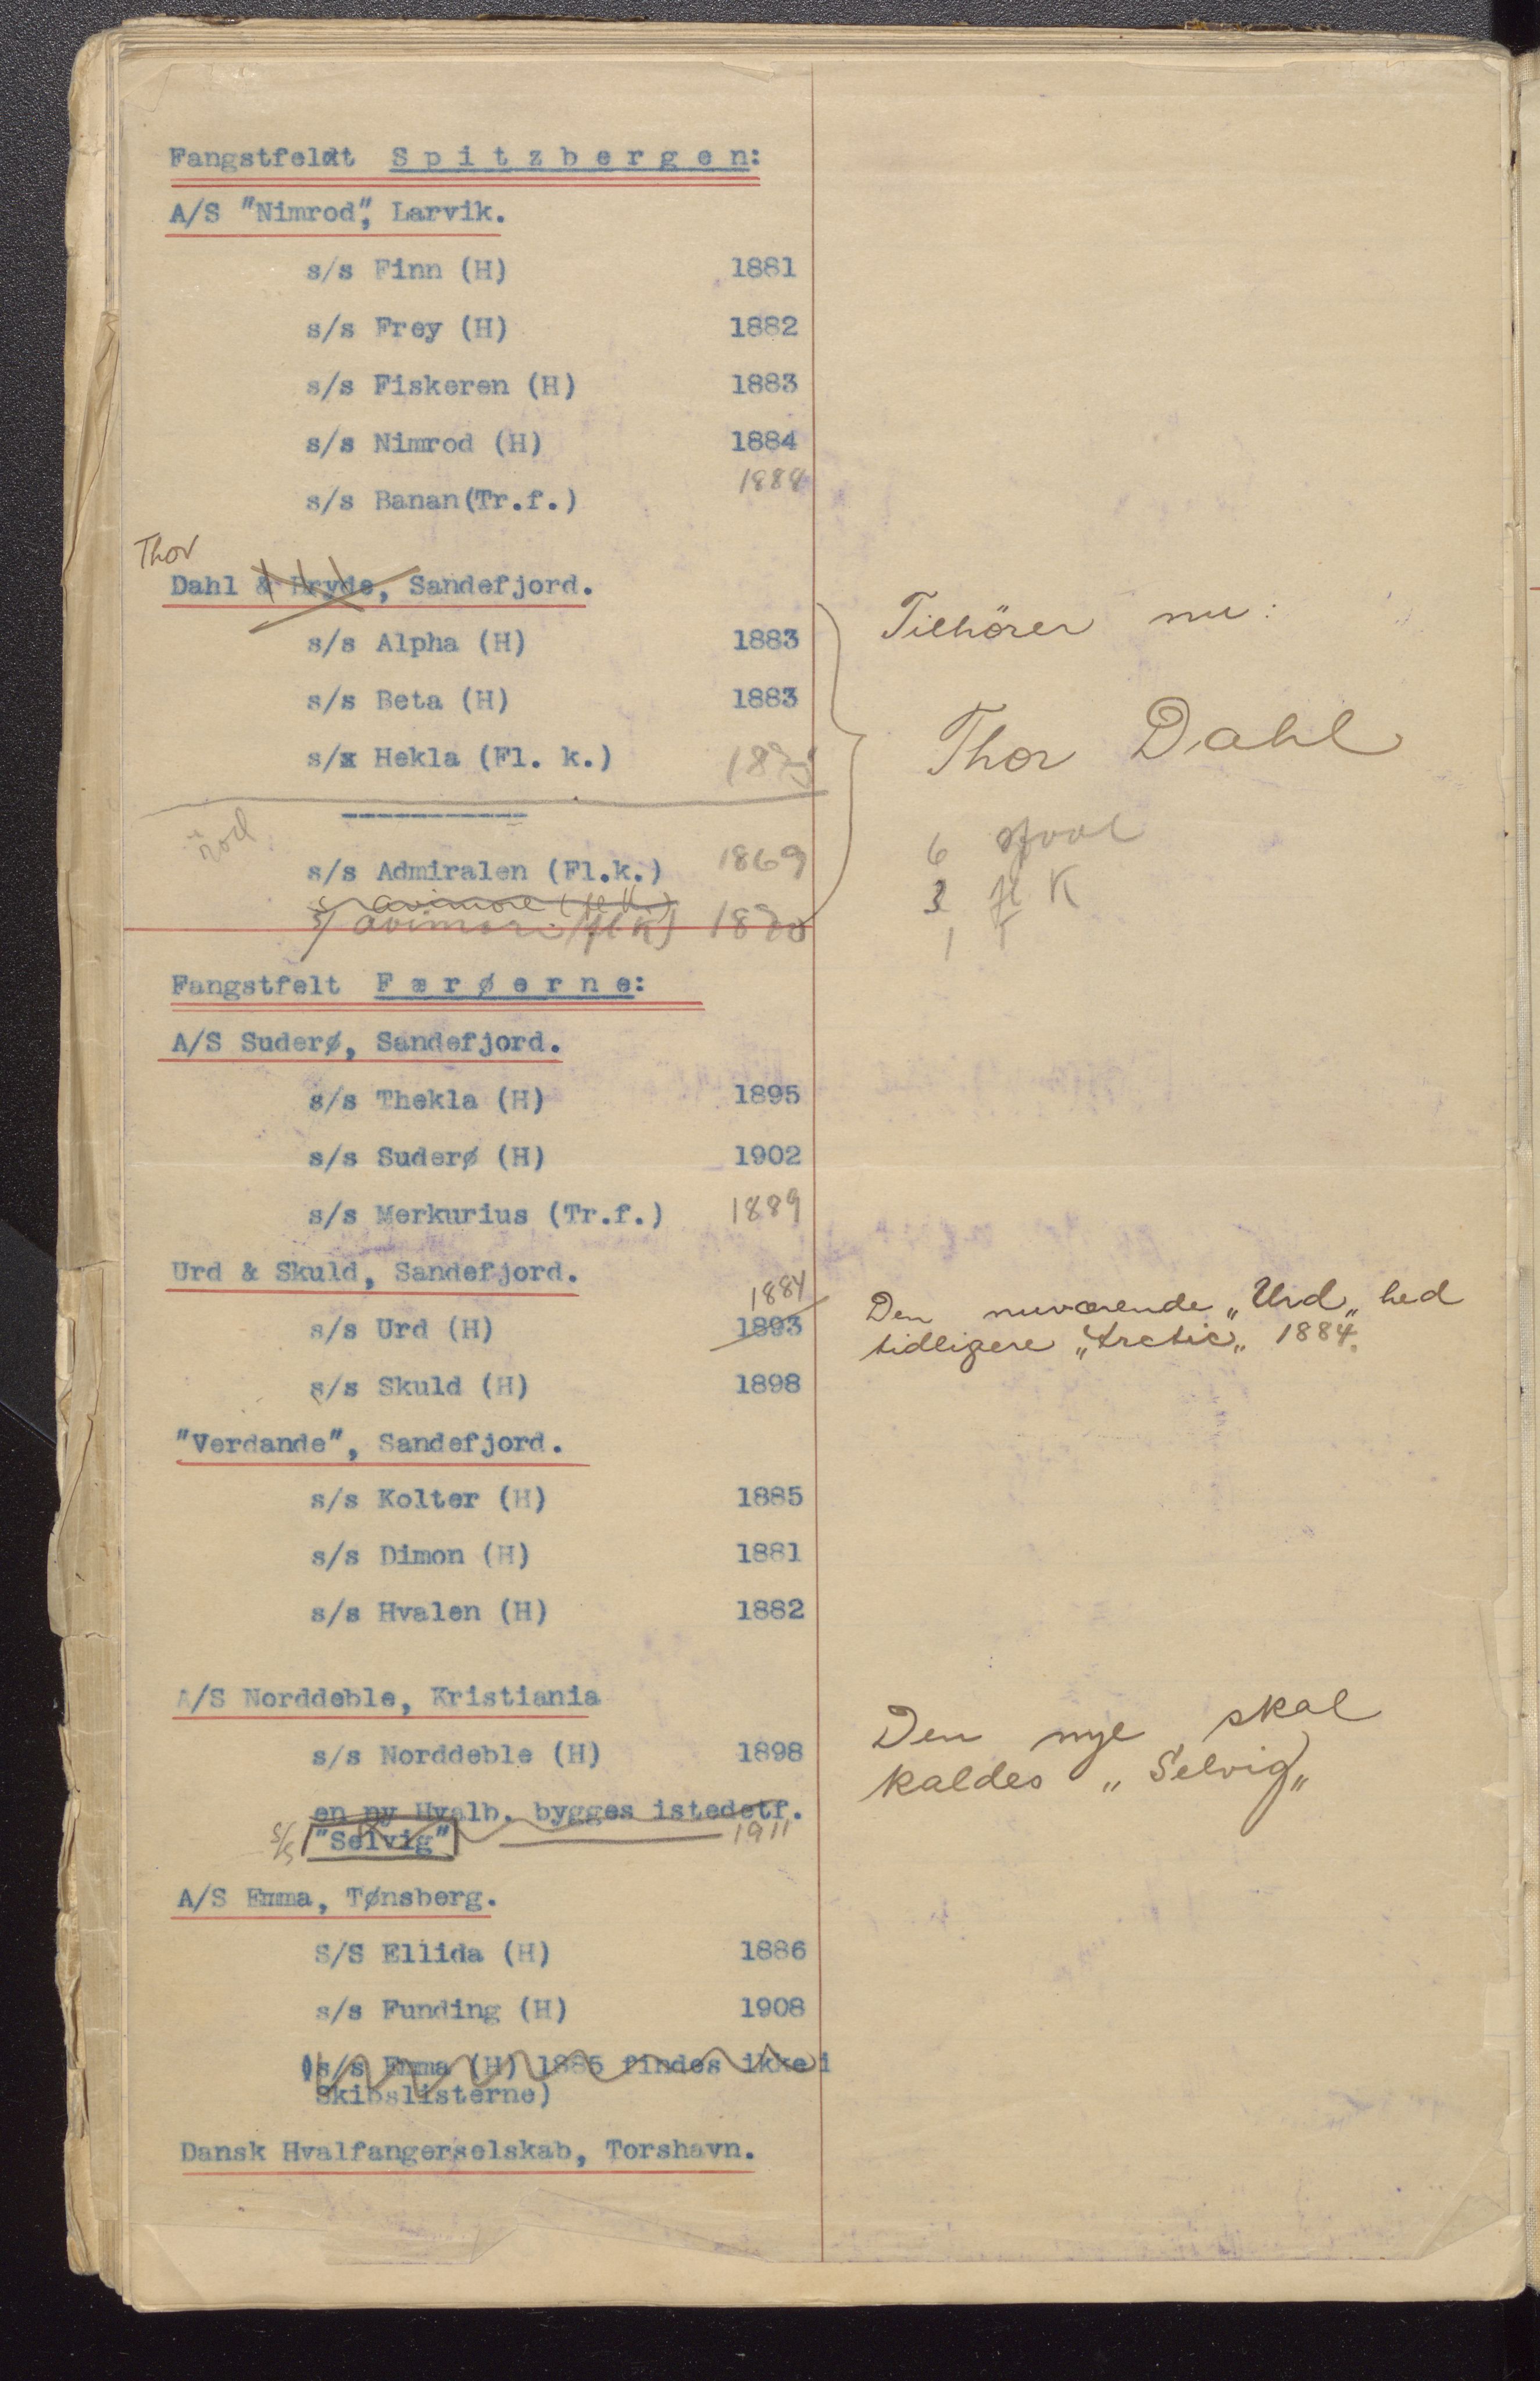 Fangstfeldt Spitzbergen:
A/S "Nimrod", Larvik.
s/s Finn (H) 1881
s/s Frey (H) 1882
s/s Fiskeren (H) 1883
s/s Nimrod (H) 1884
s/s Banan(Tr.f.) 1888
Thor
Dahl & Bryde, Sandefjord.
Tilhörer nu:
s/s Alpha (H) 1883
s/s Beta (H) 1883
Thor Dahl
s/x Hekla (Fl. k.)
s/s Admiralen (Fl.k.) 1869
6
3 fl K
1 T
s/ avimore (fl K)
Fangstfelt Færøerne:
A/S Suderø, Sandefjord.
s/s Thekla (H) 1895
s/s Suderø (H) 1902
s/s Merkurius (Tr.f.) 1889
Urd & Skuld, Sandefjord.
1884
s/s Urd (H) 1893
Den nuværende „Urd„ hed
tidligere „Arctic„ 1884.
s/s Skuld (H) 1898
"Verdande", Sandefjord.
s/s Kolter (H) 1885
s/s Dimon (H) 1881
s/s Hvalen (H) 1882
A/S Norddeble, Kristiania
s/s Norddeble (H) 1898
Den nye skal
kaldes „Selvig„
en ny Hvalb. bygges istedetf.
s/s "Selvig" 1911
A/S Emma, Tønsberg.
S/S Ellida (H) 1886
s/s Funding (H) 1908
(s/s Emma (H) 1885 findes ikke i
Skibslisterne)
Dansk Hvalfangerselskab, Torshavn.